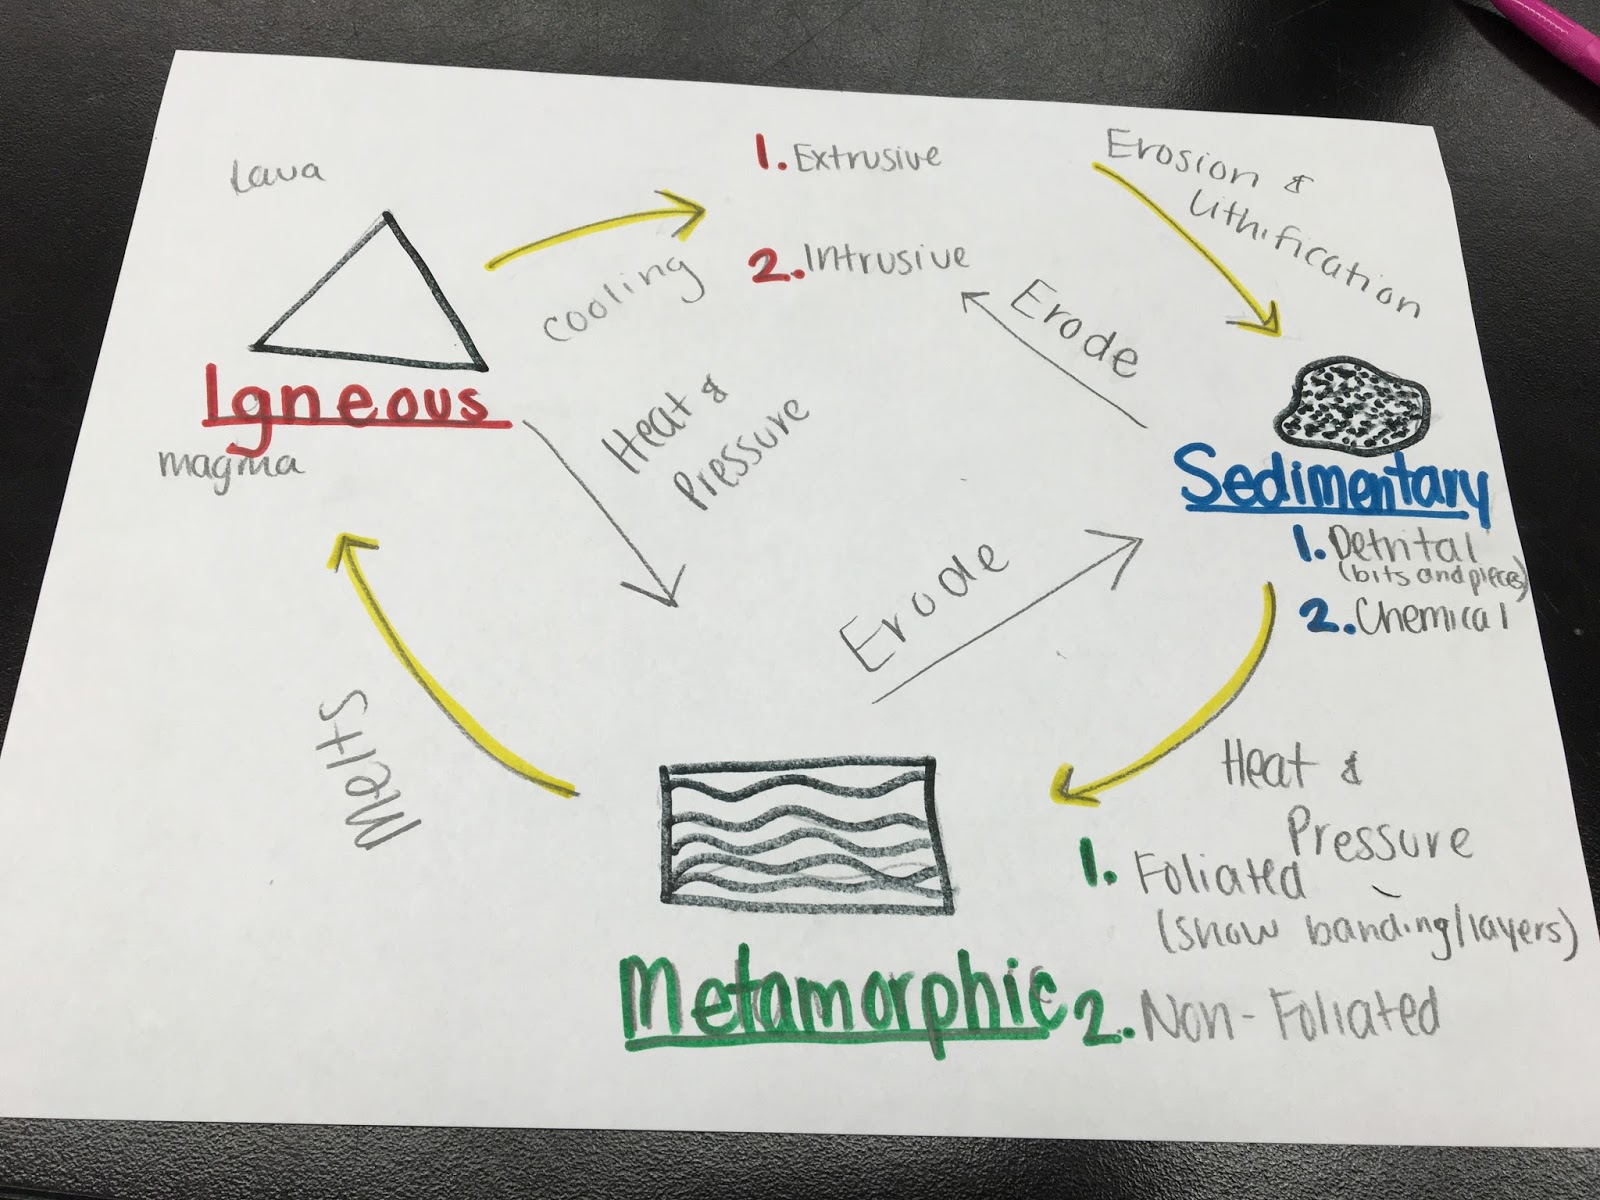 Lava
Igneous
magma
cooling
1. Extrusive
2. Intrusive
Erosion &
Lithification
Erode
Sedimentary
1. Detrital
(bits and pieces)
2. Chemical
Heat &
Pressure
Erode
Heat &
Pressure
1. Foliated
(show banding/layers)
2. Non-Foliated
Metamorphic
Melts